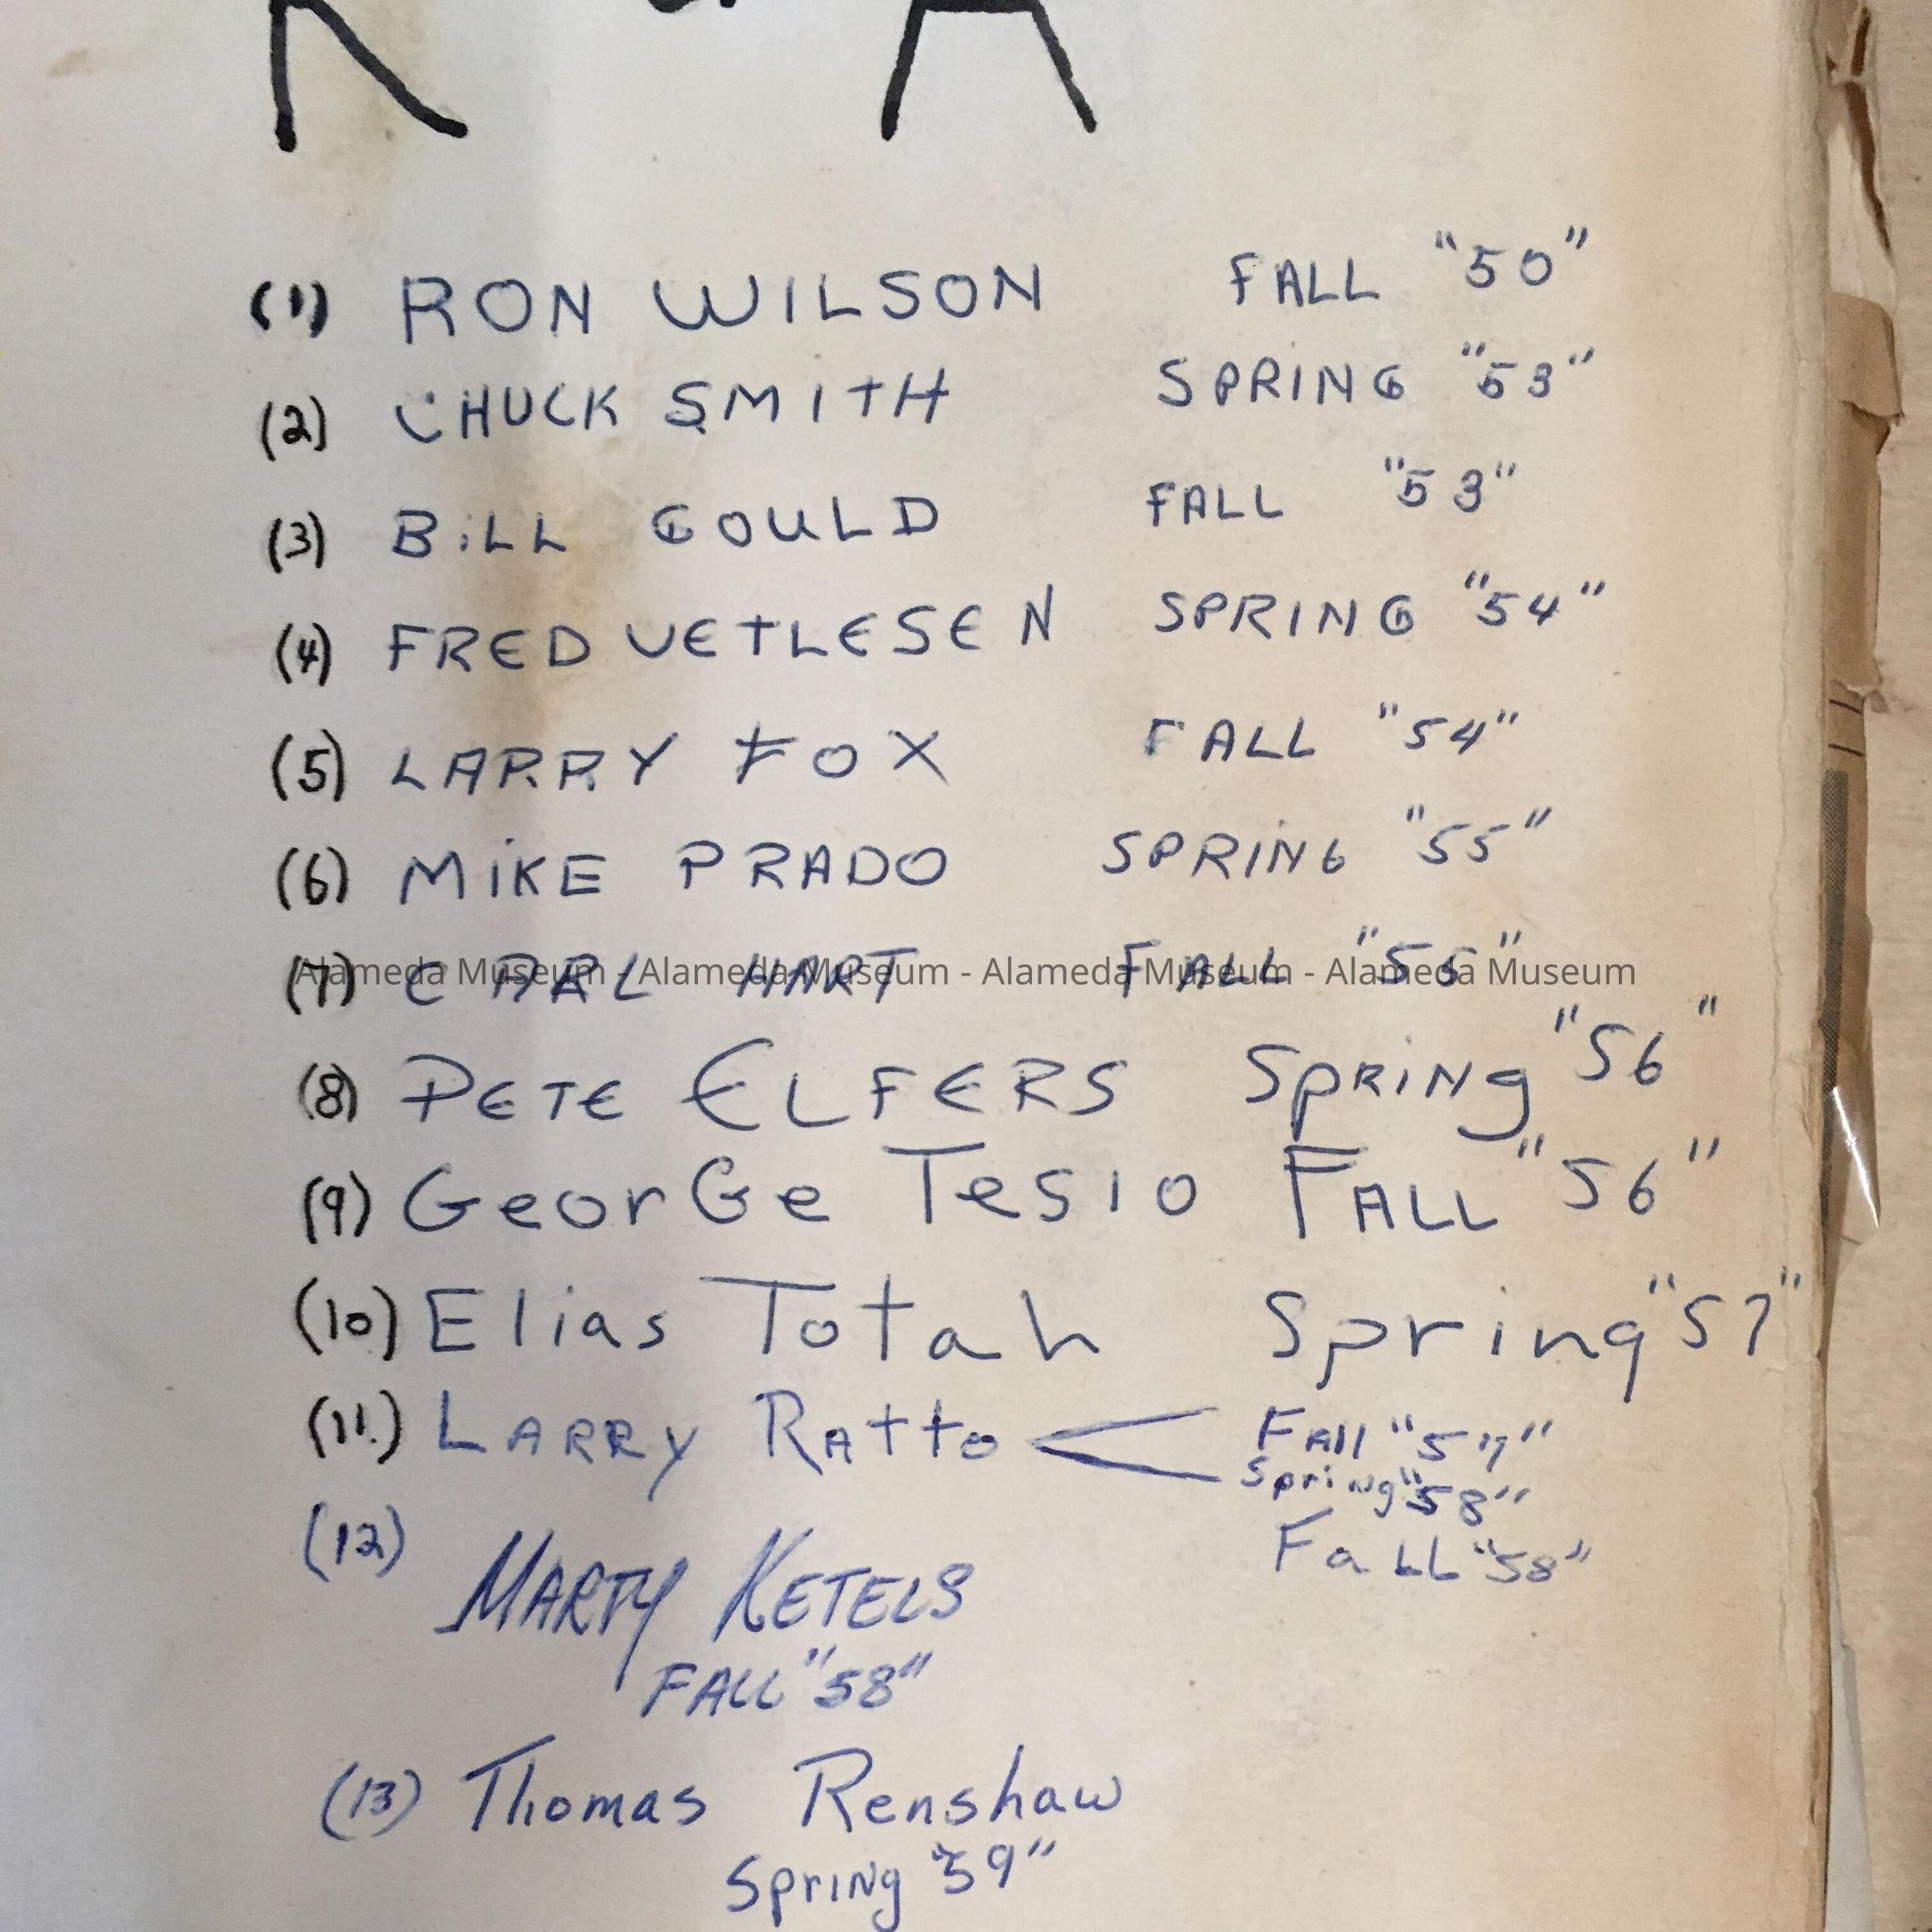 (1) RON WILSON FALL "50"
(2) CHUCK SMITH SPRING "53"
(3) BiLL GOULD FALL "53"
(4) FRED VETLESEN SPRING "54"
(5) LARRY FOX FALL "54"
(6) MiKE PRADO SPRiNG "55"
(7) CARL HART FALL "55"
Alameda Museum - Alameda Museum - Alameda Museum - Alameda Museum
(8) PETE ELFERS SpRiNg "56"
(9) GeorGe Tesio FALL "56"
(10) Elias Totah Spring "57"
(11.) LARRy RAtto Fall "57"
SpriNg "58"
FaLL "58"
(12) MARTY KETELS
FALL "58"
(13) Thomas Renshaw
SpriNg "59"